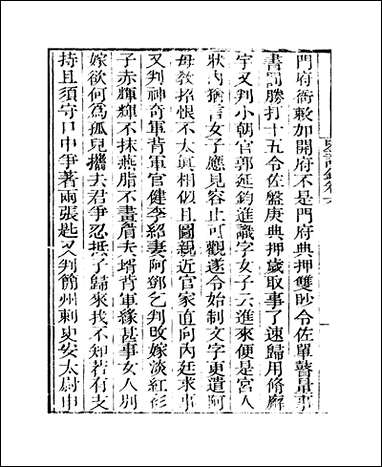 門府衙敕加開府不是門府典押雙眇令佐單瞽量事
書罰勝打十五令佐盤庚典押歲取事了速歸用脩廨
宇又判小朝官郭延鈞進識字女子云進來便是宮人
狀內猶言女子應見容止可觀遂令始制文字更遣阿
母教招恨不太真相似且圖親近官家直向內廷求事
又判神奇軍背軍官健李紹妻阿鄧乞判改嫁淡紅衫
子赤輝輝不抹燕脂不畫眉夫壻背軍緣甚事女人別
嫁欲何為孤兒攜去君爭忍抵子歸來我不知若有支
持且須守口中爭著兩張匙又判簡州刺史安太尉申